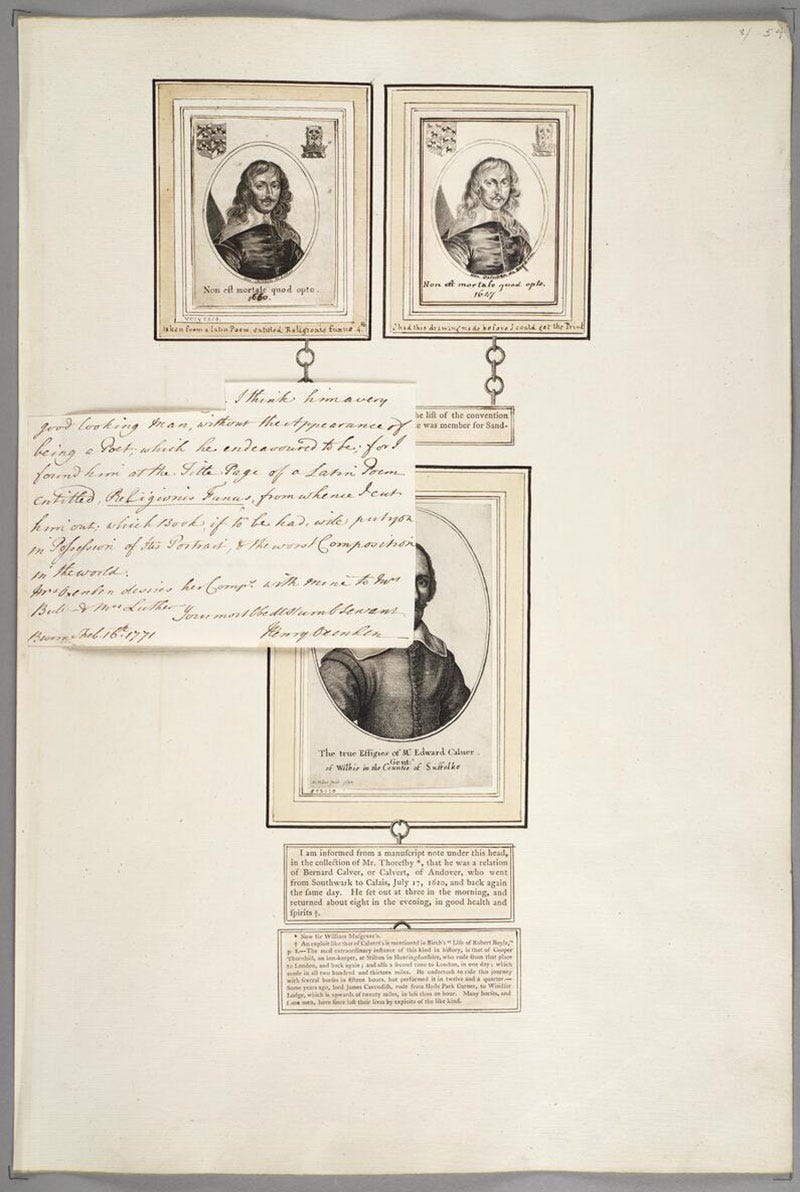 54
Non est mortale quod opto.
1660.
taken from a latin Poem, entitled Religionis Funus 4to
Non est mortale quod opto.
1647
I had this drawing made before I could get the Print
he lift of the convention
e was member for Sand-
I think him a very
good looking Man, without the Appearance of
being a Poet, which he endeavoured to be; for I
found him at the Title Page of a Latin Poem
entitled, Religionis Funus, from whence I cut
him out; which Book, if to be had, will put you
in Possession of Its Portrait, & the worst Composition
in the world.
Mrs Oxenden desires her Compts. with mine to Mrs
Bull & Mrs Luther
Your most Obedt Humble Servant
Broome Feb. 16th. 1771
Henry Oxenden
The true Effigies of Mr Edward Caluer.
Gent:
of Wilbie in the Countie of Suffolke
I am informed from a manuſcript note under this head,
in the collection of Mr. Thoreſby *, that he was a relation
of Bernard Calver, or Calvert, of Andover, who went
from Southwark to Calais, July 17, 1620, and back again
the ſame day. He ſet out at three in the morning, and
returned about eight in the evening, in good health and
ſpirits †.
* Now Sir William Muſgrave's.
† An exploit like that of Calvert's is mentioned in Birch's "Life of Robert Boyle,"
p. 8.—The moſt extraordinary inſtance of this kind in hiſtory, is that of Cooper
Thornhill, an inn-keeper, at Stilton in Huntingdonſhire, who rode from that place
to London, and back again; and alſo a ſecond time to London, in one day; which
made in all two hundred and thirteen miles. He undertook to ride this journey
with ſeveral horſes in fifteen hours, but performed it in twelve and a quarter.—
Some years ago, lord James Cavendiſh, rode from Hyde Park Corner, to Windſor
Lodge, which is upwards of twenty miles, in leſs than an hour. Many horſes, and
ſome men, have ſince loſt their lives by exploits of the like kind.